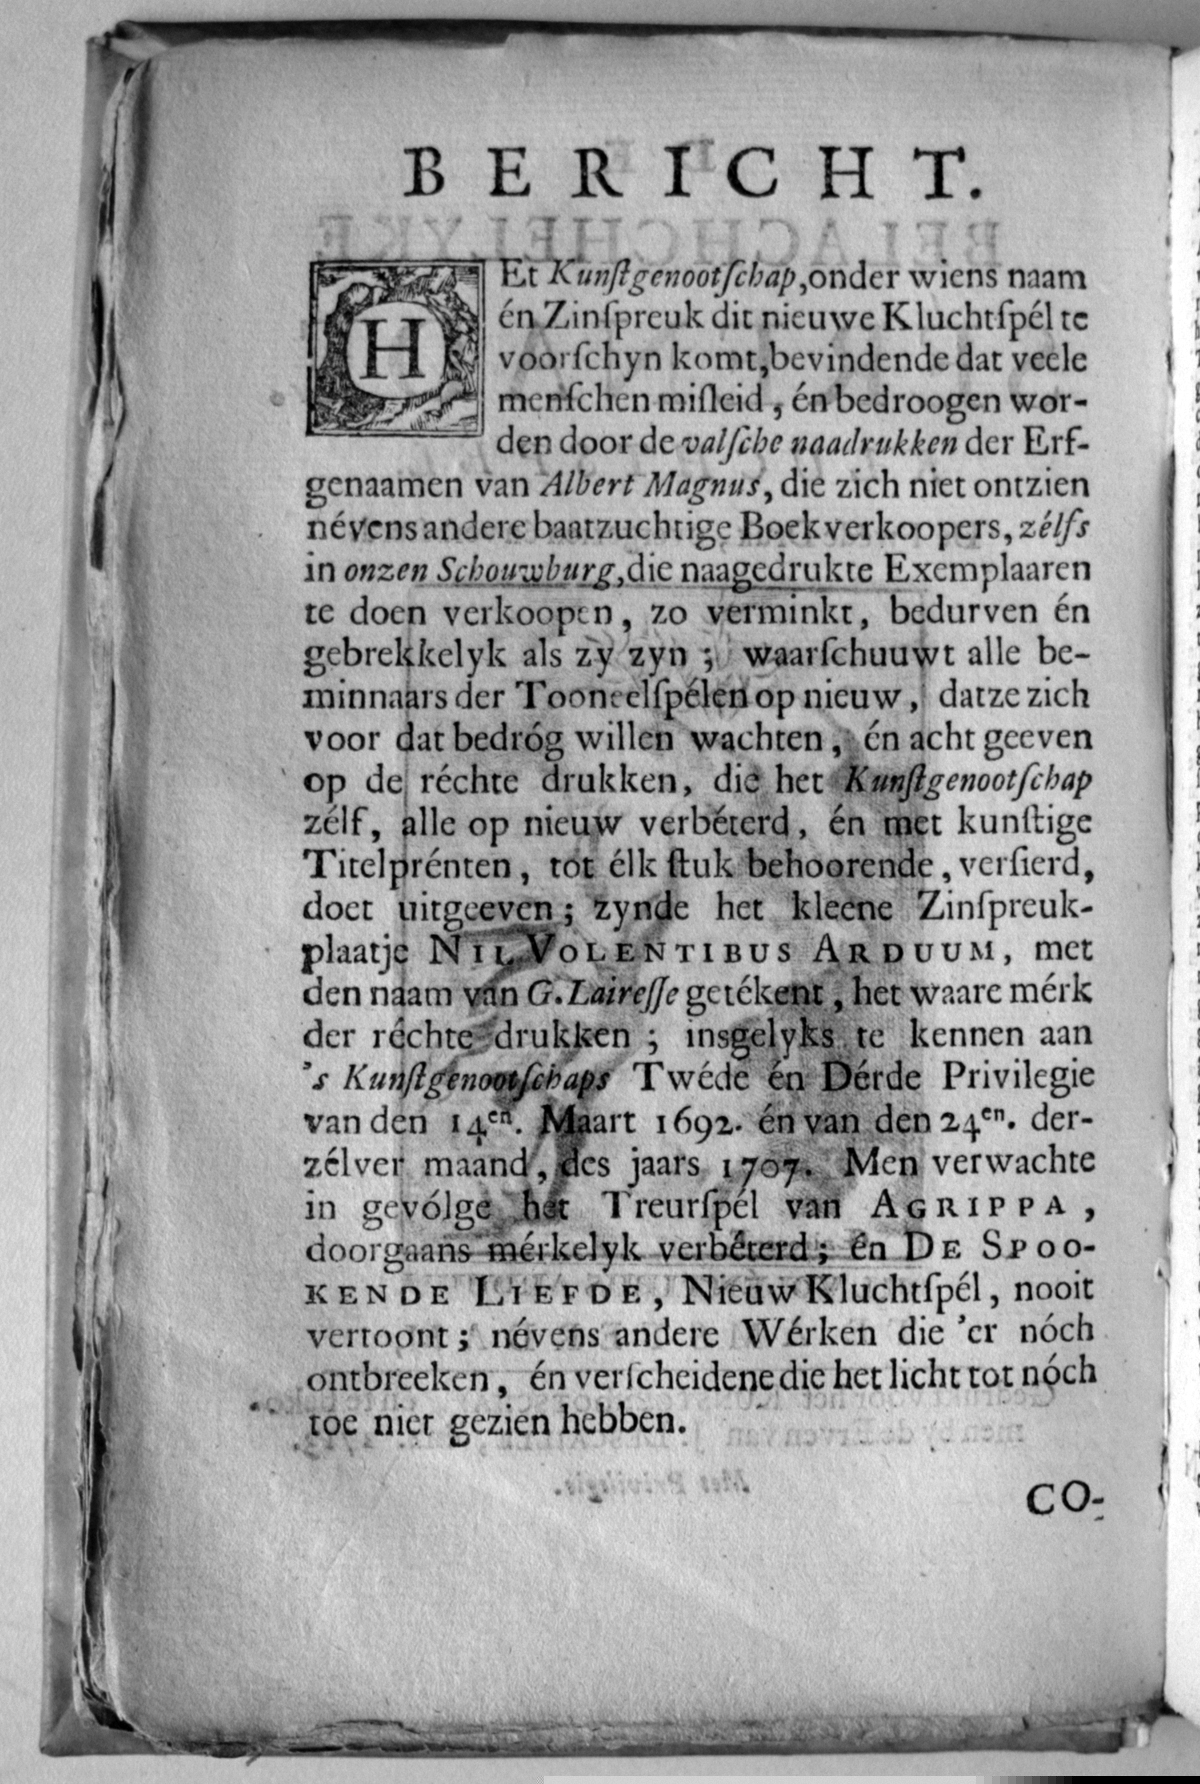 BERICHT.
HEt Kunſtgenootſchap, onder wiens naam
én Zinſpreuk dit nieuwe Kluchtſpél te
voorſchyn komt, bevindende dat veele
menſchen miſleid, én bedroogen wor-
den door de valſche naadrukken der Erf-
genaamen van Albert Magnus, die zich niet ontzien
névens andere baatzuchtige Boekverkoopers, zélfs
in onzen Schouwburg, die naagedrukte Exemplaaren
te doen verkoopen, zo vermínkt, bedurven én
gebrekkelyk als zy zyn; waarſchuuwt alle be-
minnaars der Tooneelſpélen op nieuw, datze zich
voor dat bedróg willen wachten, én acht geeven
op de réchte drukken, die het Kunſtgenootſchap
zélf, alle op nieuw verbéterd, én met kunſtige
Titelprénten, tot élk ſtuk behoorende, verſierd,
doet uitgeeven; zynde het kleene Zinſpreuk-
plaatje NIL VOLENTIBUS ARDUUM, met
den naam van G. Laireſſe getékent, het waare mérk
der réchte drukken; insgelyks te kennen aan
's Kunſtgenootſchaps Twéde én Dérde Privilegie
van den 14en. Maart 1692. én van den 24en. der-
zélver maand, des jaars 1707. Men verwachte
in gevólge het Treurſpél van AGRIPPA,
doorgaans mérkelyk verbéterd; én DE SPOO-
KENDE LIEFDE, Nieuw Kluchtſpél, nooit
vertoont; névens andere Wérken die 'er nóch
ontbreeken, én verſcheidene die het licht tot nóch
toe niet gezien hebben.
CO-